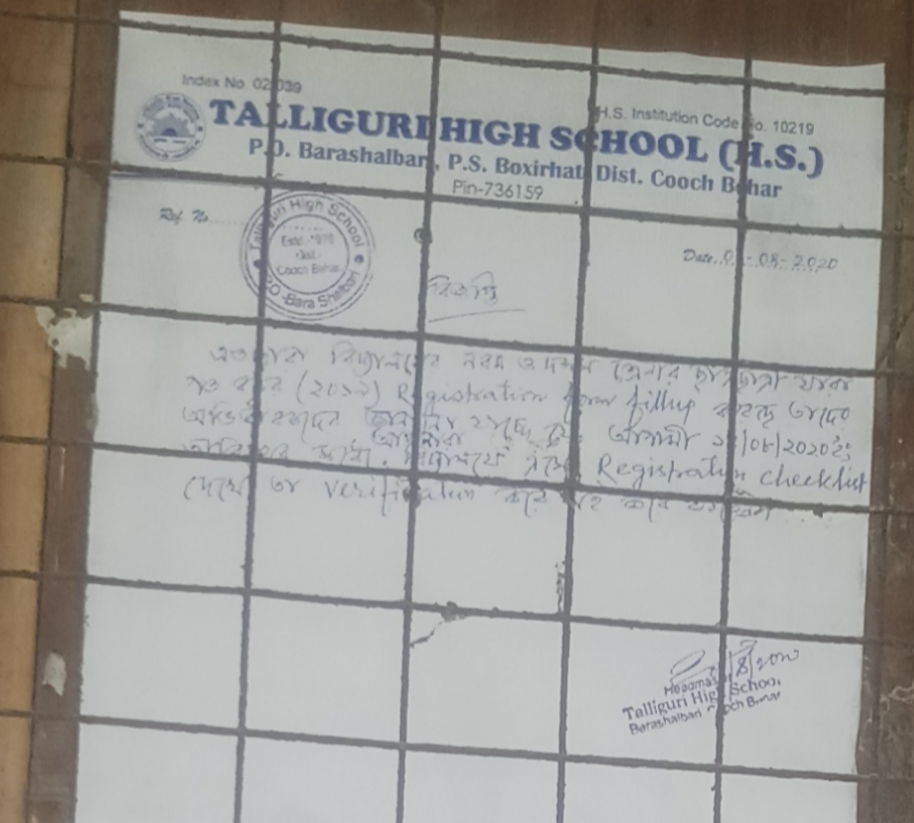 Index No. 02039
H.S. Institution Code No. 10219
TALLIGURI HIGH SCHOOL (H.S.)
P.O. Barashalbari, P.S. Boxirhat, Dist. Cooch Behar
Pin-736159
Ref. No.
Talliguri High School
Estd.-1970
Dist.
Cooch Behar
P.O -Bara Shalbari
Date. -08-2020
বিজ্ঞপ্তি
বিদ্যালয়ের নবম ও দশম শ্রেণীর
গত বছর (২০১৯) Registration form fillup করেছে তাদের
অভিভাবকদের জানানো হচ্ছে যে, আগামী /08/2020ইং
আপনারা
তারিখের মধ্যে বিদ্যালয়ে এসে Registration checklist
দেখে তা verification করে
Headmaster
Talliguri High School
Barashalbari Cooch Behar